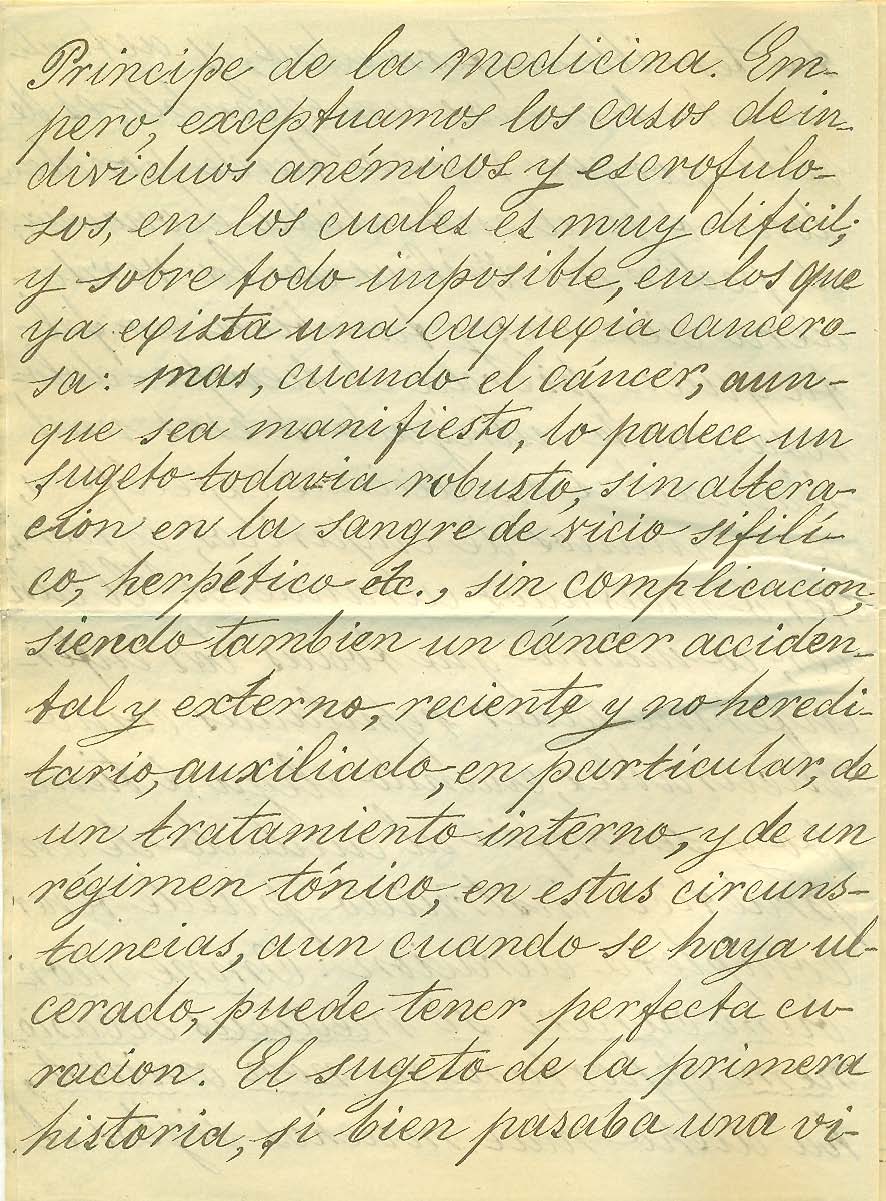 Principe de la medicina. Em-
pero, exceptuamos los casos de in-
dividuos anémicos y escrofulo-
sos, en los cuales es muy dificil;
y sobre todo imposible, en los que
ya exista una caquexia cancero-
sa: mas, cuando el cáncer, aun-
que sea manifiesto, lo padece un
sugeto todavia robusto, sin altera-
cion en la sangre de vicio sifilí-
co, herpético etc., sin complicacion,
siendo tambien un cáncer acciden-
tal y externo, reciente y no heredi-
tario, auxiliado, en particular, de
un tratamiento interno, y de un
régimen tónico, en estas circuns-
tancias, aun cuando se haya ul-
cerado, puede tener perfecta cu-
racion. El sugeto de la primera
historia, si bien pasaba una vi-